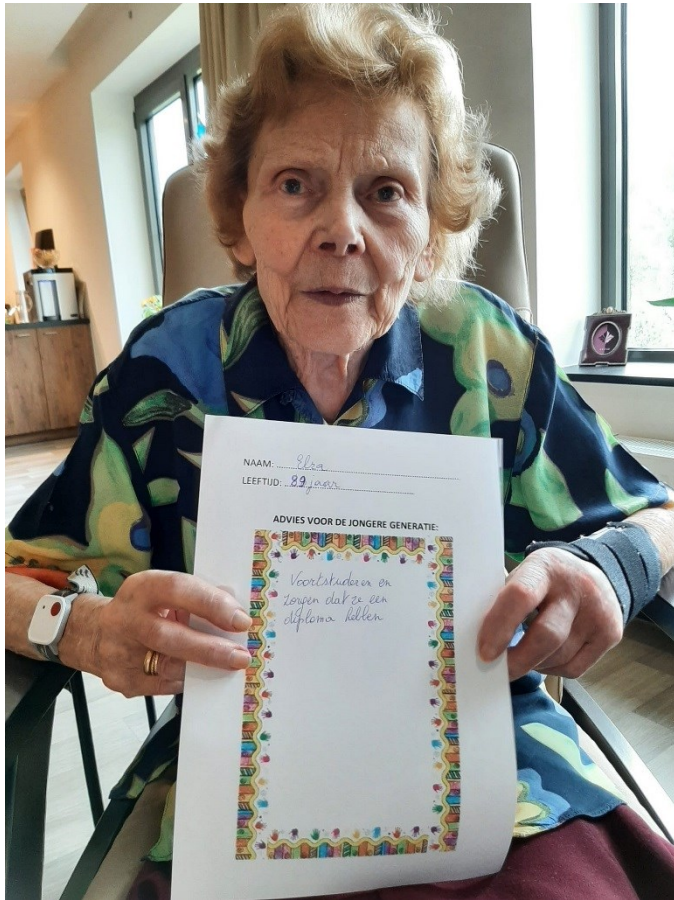 NAAM: Elza
LEEFTIJD: 89 jaar
ADVIES VOOR DE JONGERE GENERATIE:
Voortstuderen en
zorgen dat ze een
diploma hebben